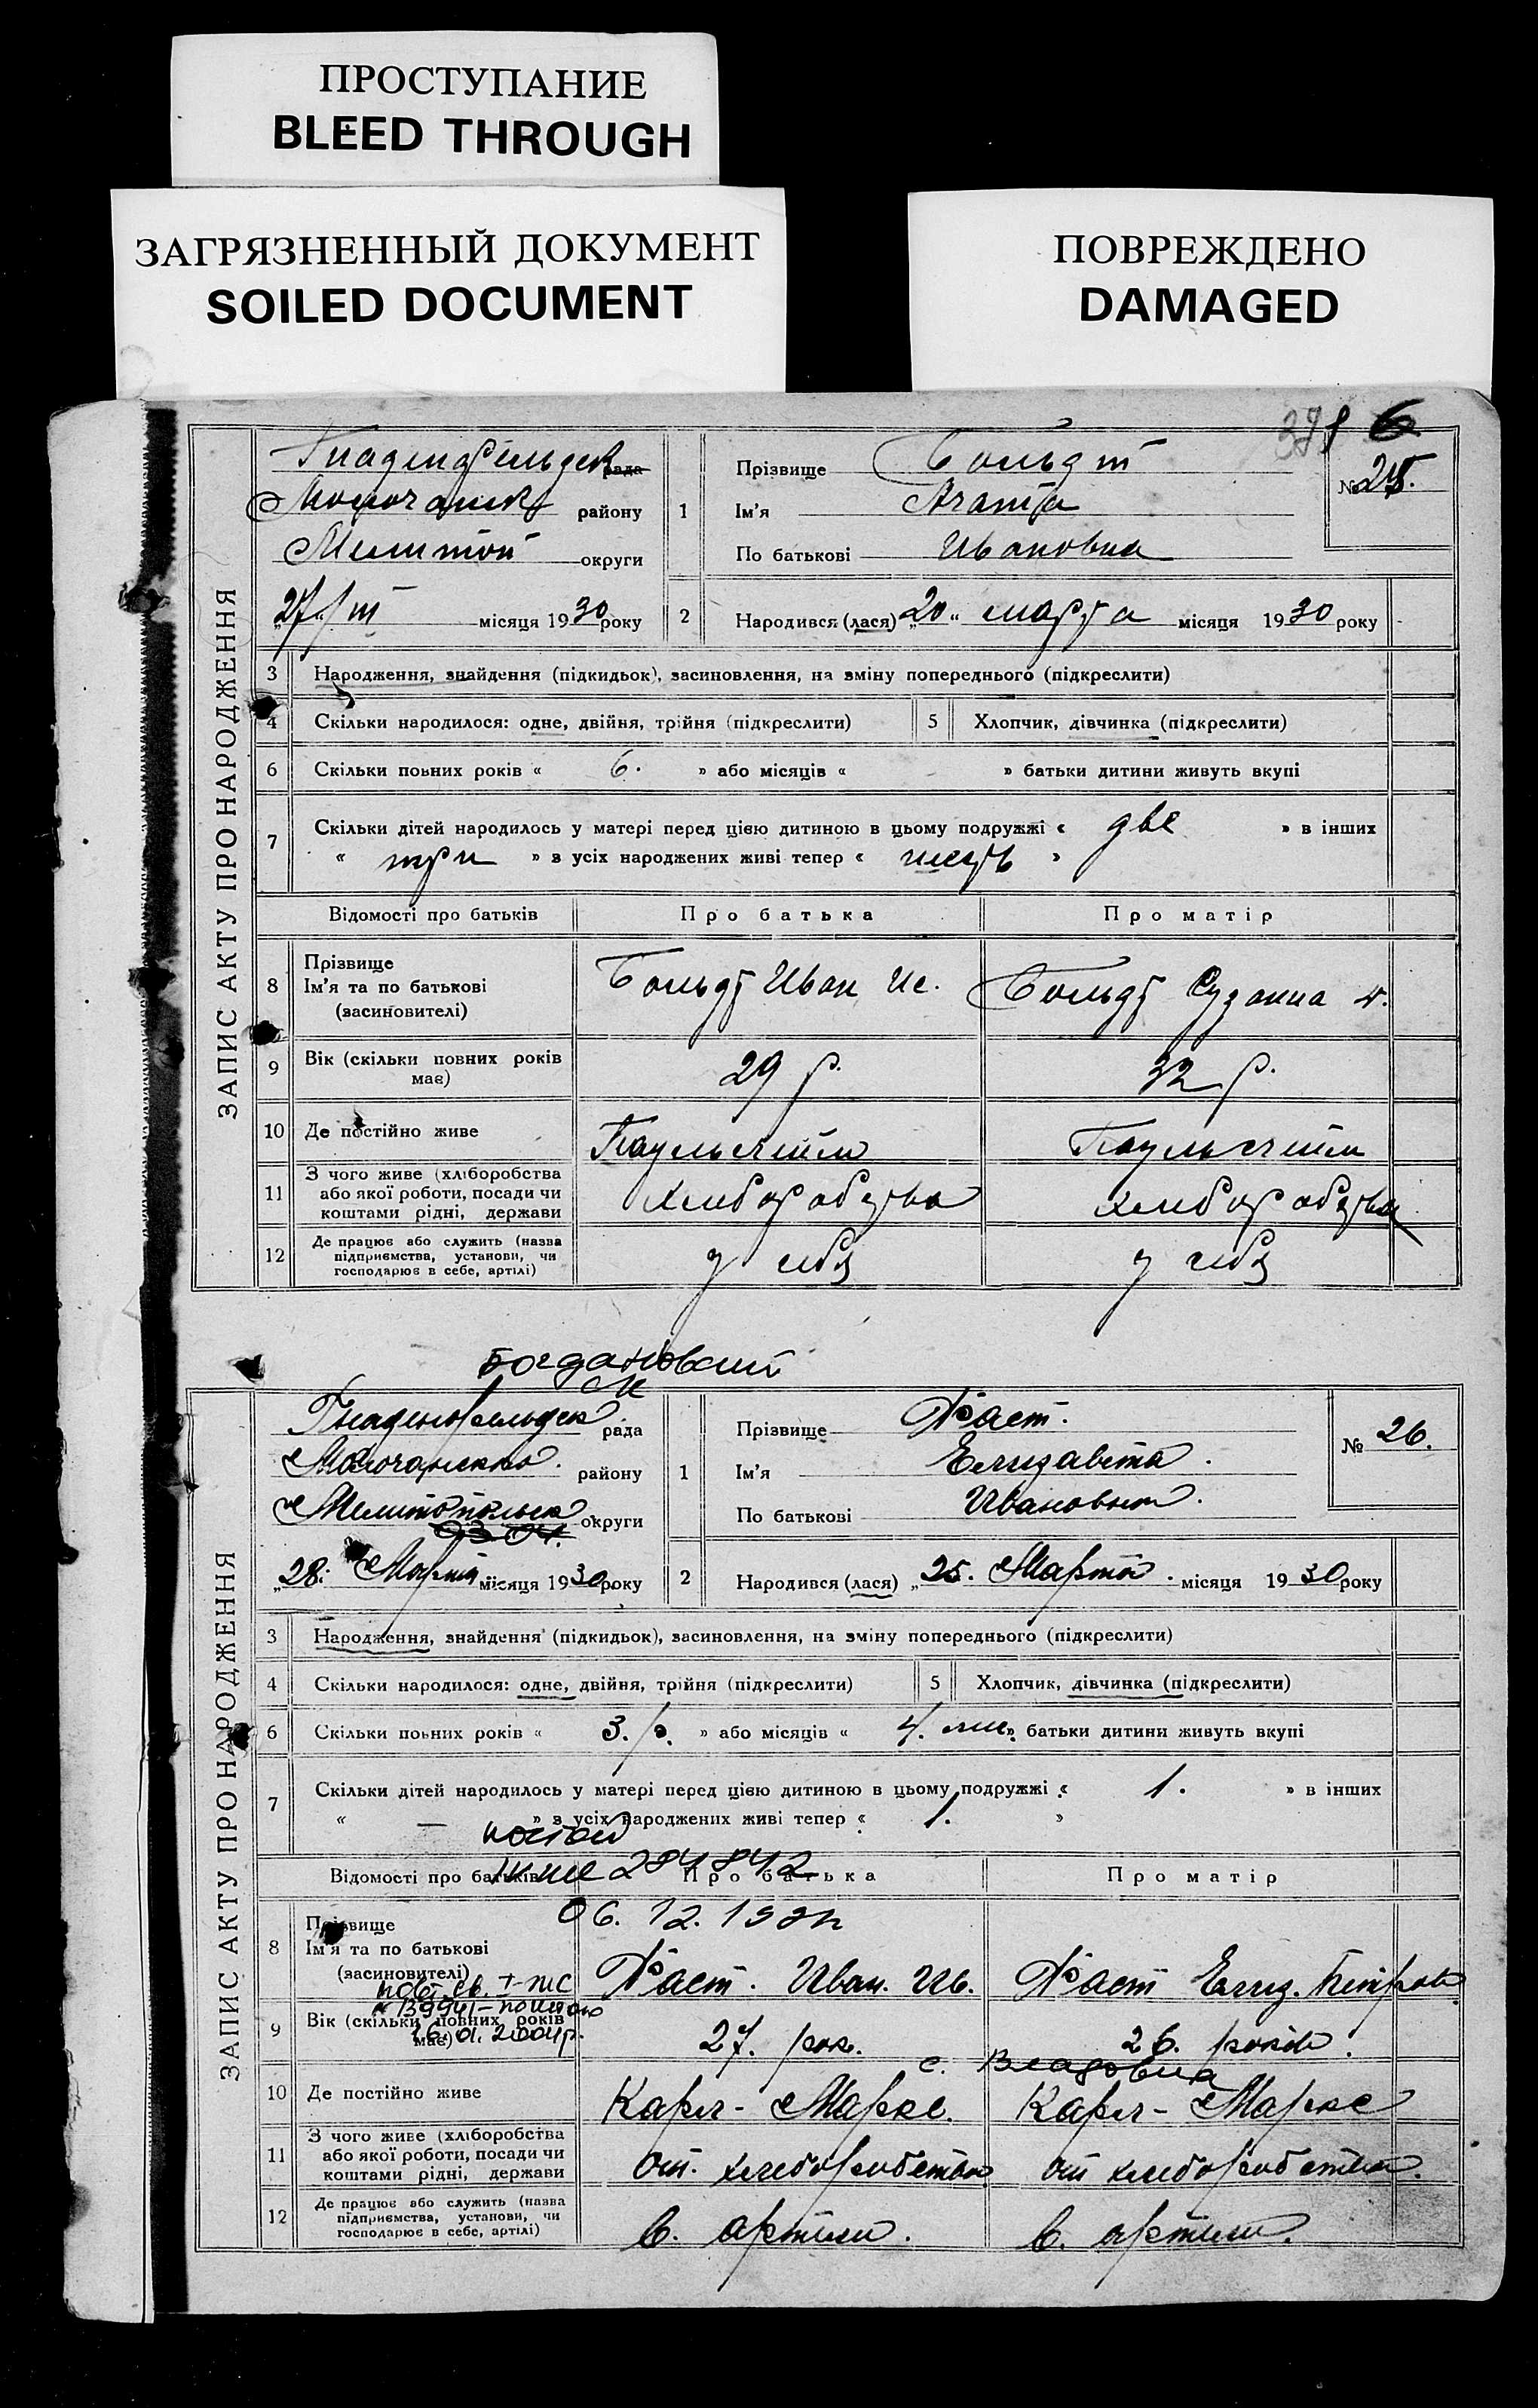 ПРОСТУПАНИЕ
BLEED THROUGH
ЗАГРЯЗНЕННЫЙ ДОКУМЕНТ
SOILED DOCUMENT
ПОВРЕЖДЕНО
DAMAGED
6
ЗАПИС АКТУ ПРО НАРОДЖЕННЯ
Гнаденфельдск рада
Молочанск району
Мелитоп округи
27/III місяця 1930 року
1 Прізвище Больдт
Ім'я Агата
По батькові Ивановна
№ 25.
2 Народився (лася) „20“ марта місяця 1930 року
3 Народження, знайдення (підкидьок), засиновлення, на зміну попереднього (підкреслити)
4 Скільки народилося: одне, двійня, трійня (підкреслити) 5 Хлопчик, дівчинка (підкреслити)
6 Скільки повних років « 6. » або місяців « » батьки дитини живуть вкупі
7 Скільки дітей народилось у матері перед цією дитиною в цьому подружжі « две » в інших
« три » в усіх народжених живі тепер « »
Відомості про батьків Про батька Про матір
8 Прізвище
Ім'я та по батькові
(засиновителі)
Больдт Иван Ис. Больдт Сузанна
9 Вік (скільки повних років
має)
29 р. 32 р.
10 Де постійно живе Паульсгейм Паульсгейм
11 З чого живе (хліборобства
або якої роботи, посади чи
коштами рідні, держави
хлеборобства хлеборобства
12 Де працює або служить (назва
підприємства, установи, чи
господарює в себе, артілі)
у себя у себя
Богдановский
ЗАПИС АКТУ ПРО НАРОДЖЕННЯ
Гнаденфельдск рада
Молочанско. району
Мелитопольск округи
„28. Марта місяця 1930 року
1 Прізвище Фаст.
Ім'я Елизавета.
По батькові Ивановна.
№ 26.
2 Народився (лася) „25. Марта. місяця 1930 року
3 Народження, знайдення (підкидьок), засиновлення, на зміну попереднього (підкреслити)
4 Скільки народилося: одне, двійня, трійня (підкреслити) 5 Хлопчик, дівчинка (підкреслити)
6 Скільки повних років « 3. р. » або місяців « 4. мис. » батьки дитини живуть вкупі
7 Скільки дітей народилось у матері перед цією дитиною в цьому подружжі « 1. » в інших
« — » в усіх народжених живі тепер « 1. »
Відомості про батьків Про батька Про матір
284842
06.12.
8 Прізвище
Ім'я та по батькові
(засиновителі)
Фаст. Иван. Ив. Фаст Елиз. Петров
повт. св. I-ЖС
139941
16.01.2004р.
9 Вік (скільки повних років
має)
27. рок. 26. років.
с. Владовка
10 Де постійно живе Карл-Маркс. Карл-Маркс
11 З чого живе (хліборобства
або якої роботи, посади чи
коштами рідні, держави
от. хлеборобства от хлеборобства.
12 Де працює або служить (назва
підприємства, установи, чи
господарює в себе, артілі)
в. артили. в. артили.